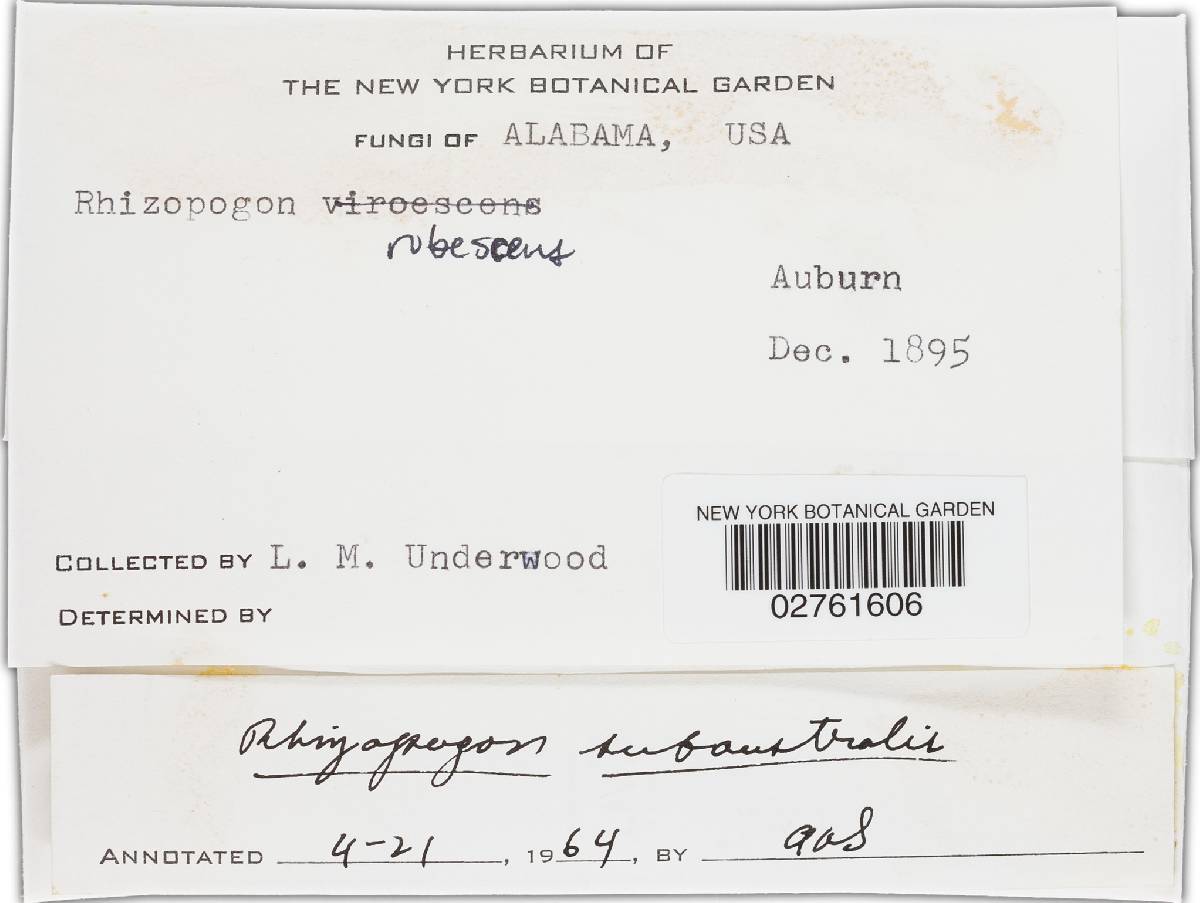 HERBARIUM OF
THE NEW YORK BOTANICAL GARDEN
FUNGI OF ALABAMA, USA
Rhizopogon viroescens
rubescens
Auburn
Dec. 1895
NEW YORK BOTANICAL GARDEN
02761606
COLLECTED BY L. M. Underwood
DETERMINED BY
Rhizopogon subaustralis
ANNOTATED 4-21, 1964, BY AHS